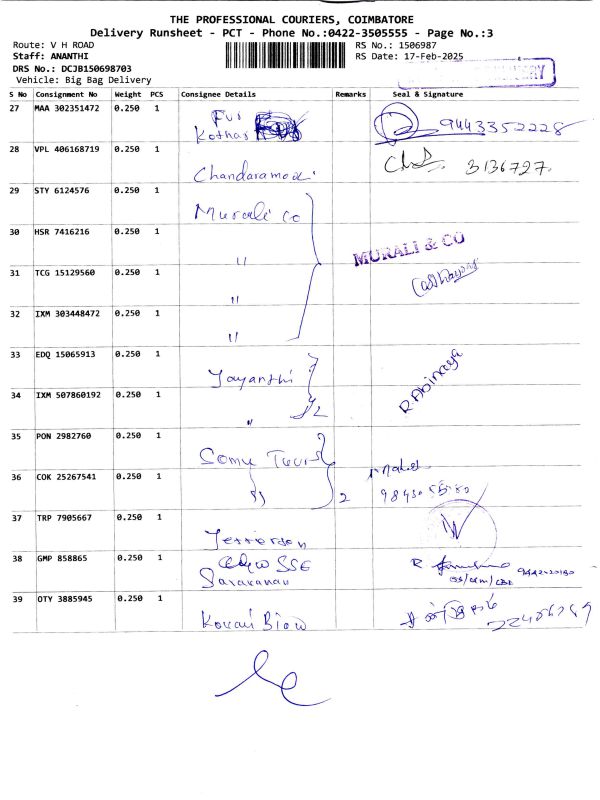 THE PROFESSIONAL COURIERS, COIMBATORE
Delivery Runsheet - PCT - Phone No.:0422-3505555 - Page No.:3
Route: V H ROAD
RS No.: 1506987
Staff: ANANTHI
RS Date: 17-Feb-2025
DRS No.: DCJB150698703
Vehicle: Big Bag Delivery
S No Consignment No Weight PCS Consignee Details Remarks Seal & Signature
27 MAA 302351472 0.250 1
Kothari 9443352228
28 VPL 406168719 0.250 1
3136727
29 STY 6124576 0.250 1
Murali Co
30 HSR 7416216 0.250 1
" MURALI & CO
31 TCG 15129560 0.250 1
"
32 IXM 303448472 0.250 1
"
33 EDQ 15065913 0.250 1
Jayanthi R.Abinaya
34 IXM 507860192 0.250 1
" 2
35 PON 2982760 0.250 1
Somu
36 COK 25267541 0.250 1
" 2
37 TRP 7905667 0.250 1
38 GMP 858865 0.250 1
SSE
Saravanan
39 OTY 3885945 0.250 1
Kovai